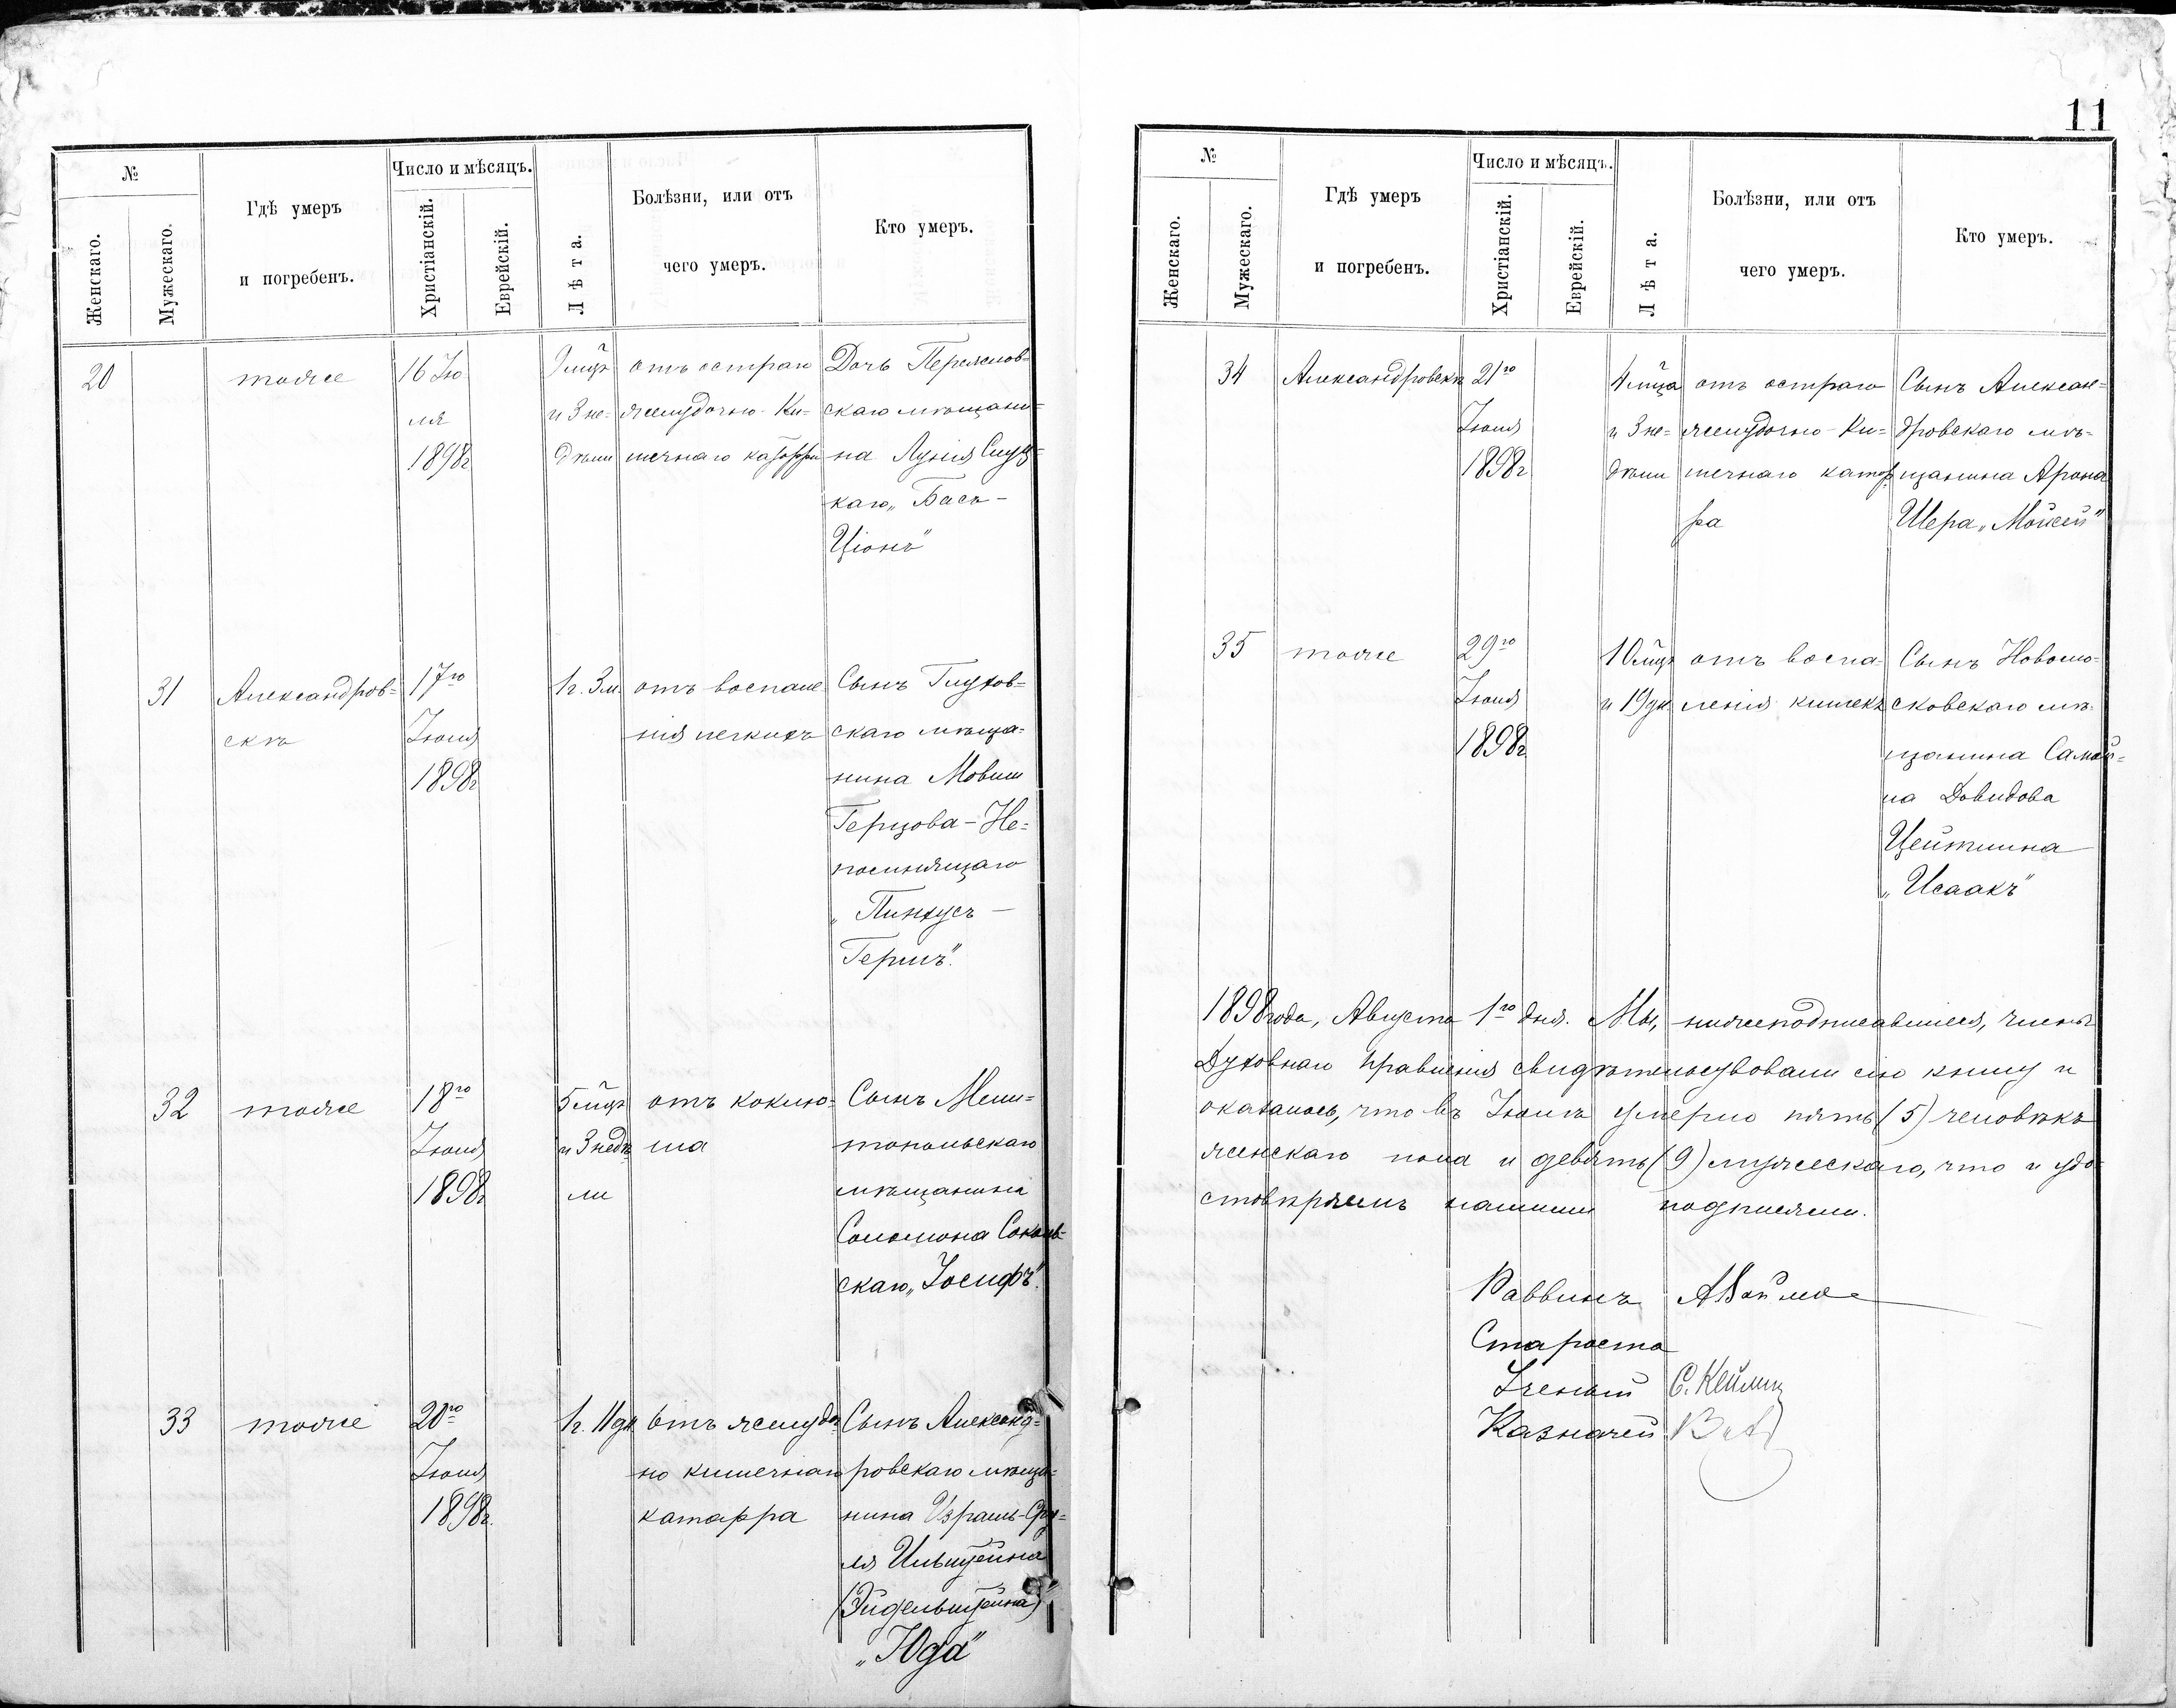 11
№
Женскаго.
Мужескаго.
Гдѣ умеръ
и погребенъ.
Число и мѣсяцъ.
Христіанскій.
Еврейскій.
Лѣта.
Болѣзни, или отъ
чего умеръ.
Кто умеръ.
20
тоже
16 Ію-
ля
1898г
9 мцѣ
и 3 не-
дѣли
отъ остраго
желудочно-Ки-
шечнаго
Дочь
скаго мѣщани-
на
каго „Бася-
Ціонъ"
31
Александров-
скѣ
17го
Іюля
1898г
1г. 3м.
отъ воспале
нія легкихъ
Сынъ Глухов-
скаго мѣща-
нина Мовши
Герцова-Не-
помнящаго
„Пинхусъ-
Гершъ".
32
тоже
18го
Іюля
1898г
5 мцѣ
и 3 недѣ
ли
отъ коклю-
ша
Сынъ Мели-
топольскаго
мѣщанина
Соломона Соколь-
скаго „Іосифъ".
33
тоже
20го
Іюля
1898г.
1г. 11 дн.
отъ желудо
но кишечнаго
катарра
Сынъ Александ-
ровскаго мѣща-
нина Израиль-Сру-
ля Ильштейна
(Эйдельштейна)
„Юда"
№
Женскаго.
Мужескаго.
Гдѣ умеръ
и погребенъ.
Число и мѣсяцъ.
Христіанскій.
Еврейскій.
Лѣта.
Болѣзни, или отъ
чего умеръ.
Кто умеръ.
34
Александровскѣ
21го
Іюля
1898г
4 мца
и 3 не-
дѣли
отъ остраго
желудочно-Ки-
шечнаго катар
ра
Сынъ Алексан-
дровскаго мѣ-
щанина Арона
Шера „Мойсей"
35
тоже
29го
Іюля
1898г
10 мцѣ
и 19 дн
отъ воспа-
ленія кишекъ
Сынъ Новомо-
сковскаго мѣ-
щанина Самой-
ла Давидова
Цейтлина
„Исаакъ"
1898 года, Августа 1го дня. Мы, нижеподписавшіеся, члены
Духовнаго Правленія свидѣтельствовали сію книгу и
оказалось, что въ Іюлѣ умерло пять (5) человѣкъ
женскаго пола и девять (9) мужескаго, что и удо-
стовѣряемъ нашими подписями.
Раввинъ
Староста
Ученый
Казначей